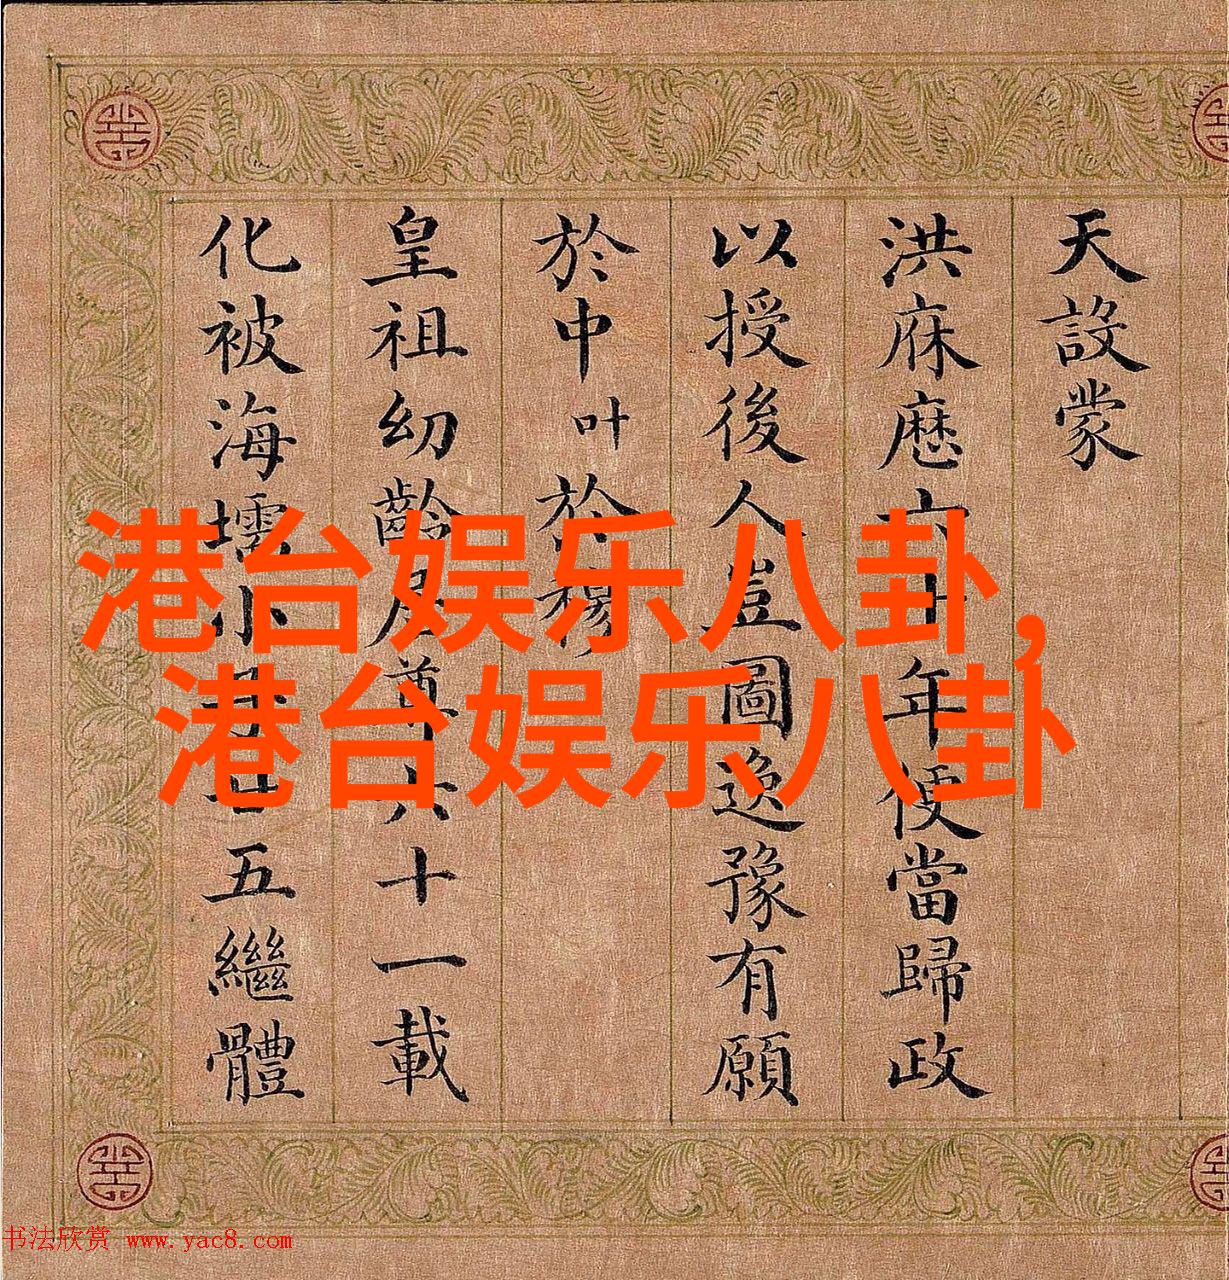 天設蒙
洪庥歷六十年便當歸政
以授後人豈圖逸豫有願
於中叶於穆
皇祖幼齡居尊六十一載
化被海壖小子廿五繼體
港台娱乐八卦，
港台娱乐八卦
书法欣赏 www.yac8.com